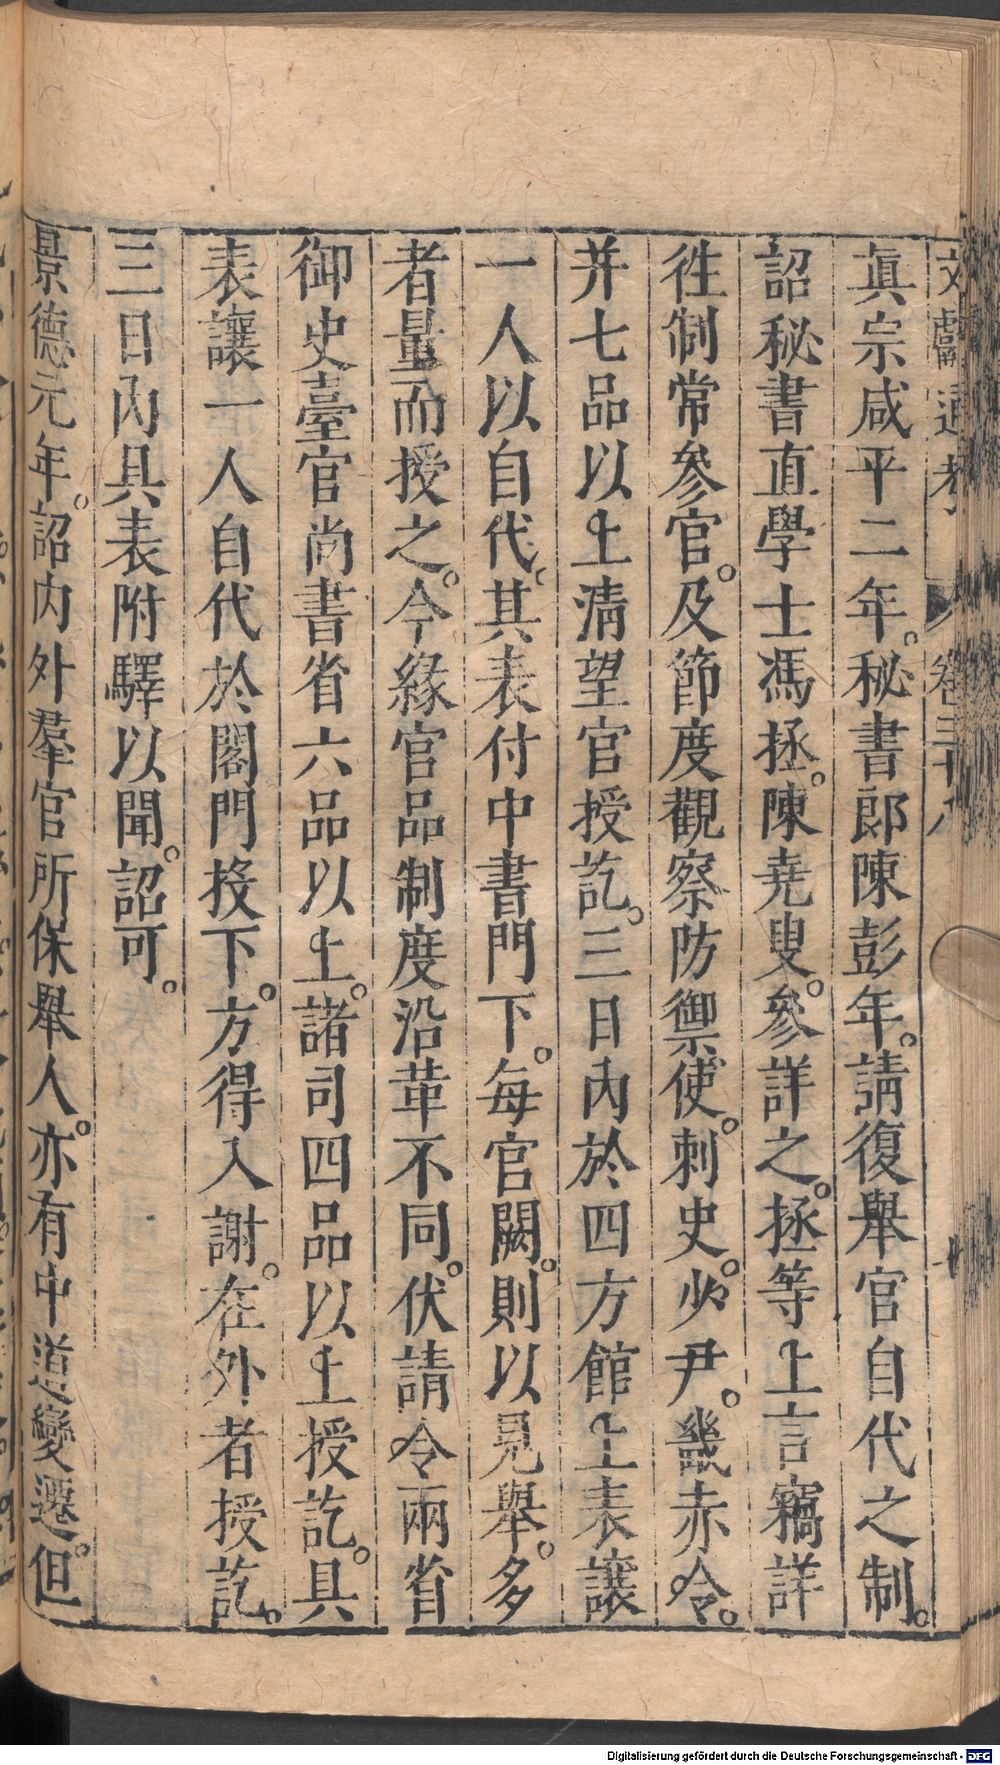 文獻通考 卷三十八
眞宗咸平二年。秘書郎陳彭年。請復舉官自代之制。
詔秘書直學士馮拯。陳堯叟。參詳之。拯等上言竊詳
徃制常參官。及節度觀察防禦使。刺史。少尹。畿赤令。
并七品以上淸望官授訖。三日內於四方館上表讓
一人以自代。其表付中書門下。每官闕。則以見舉。多
者量而授之。今緣官品制度沿革不同。伏請令兩省
御史臺官尚書省六品以上。諸司四品以上授訖。具
表讓一人自代於閤門投下。方得入謝。在外者授訖。
三日內具表附驛以聞。詔可。
景德元年。詔內外羣官所保舉人。亦有中道變遷。但
Digitalisierung gefördert durch die Deutsche Forschungsgemeinschaft - DFG